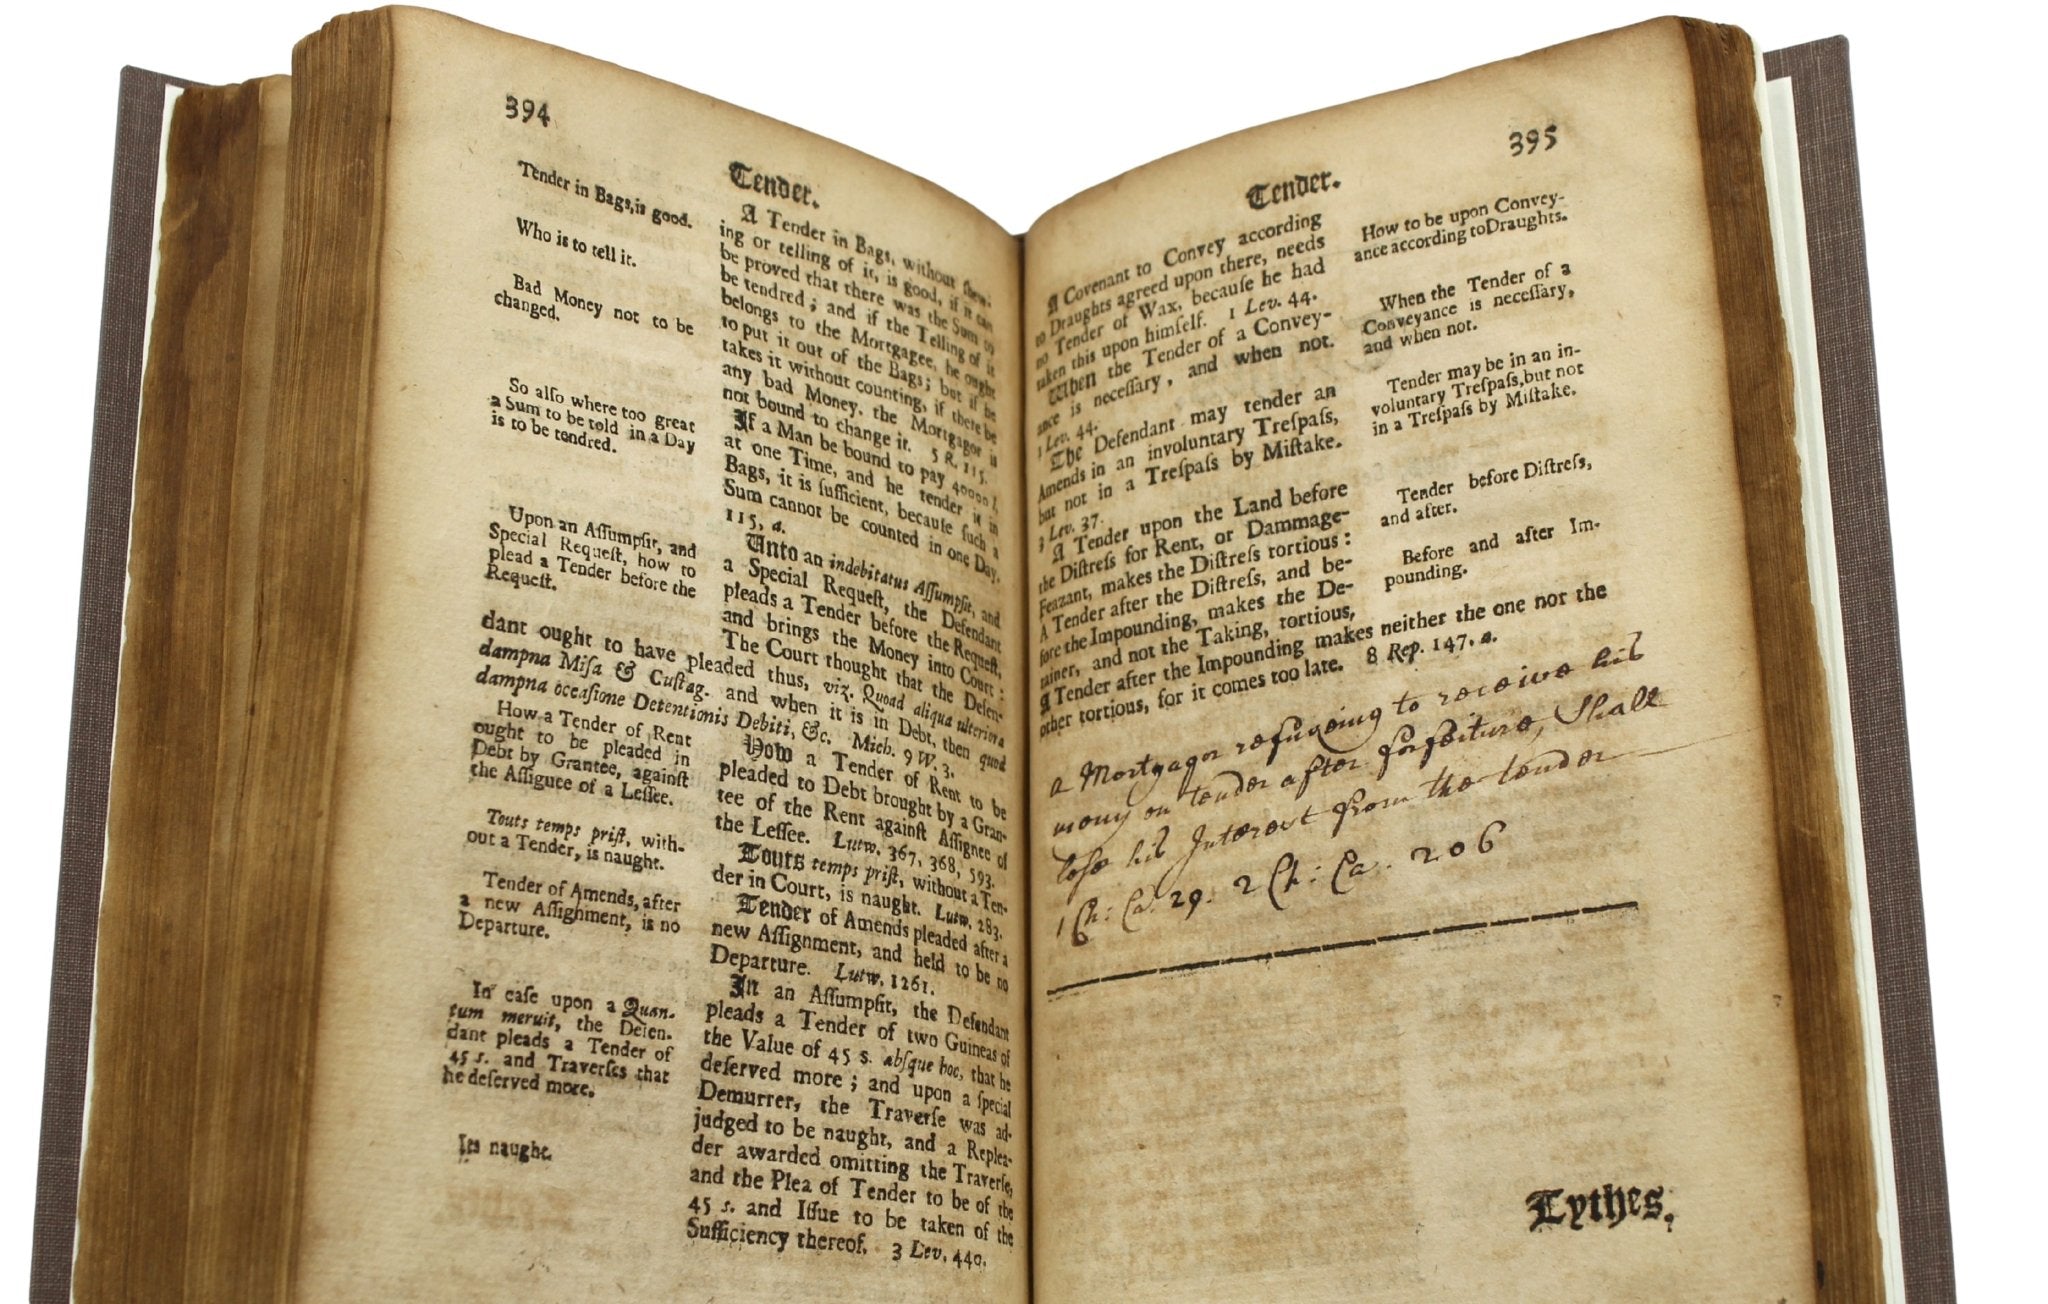 394
Tender.
Tender in Bags, is good.
Who is to tell it.
Bad Money not to be
changed.
So alſo where too great
a Sum to be told in a Day
is to be tendred.
Upon an Aſſumpſit, and
Special Requeſt, how to
plead a Tender before the
Requeſt.
A Tender in Bags, without ſhew-
ing or telling of it, is good, if it can
be proved that there was the Sum to
be tendred; and if the Telling of it
belongs to the Mortgagee, he ought
to put it out of the Bags; but if he
takes it without counting, if there be
any bad Money, the Mortgagor is
not bound to change it. 5 R. 115.
If a Man be bound to pay 40000 l.
at one Time, and he tender it in
Bags, it is ſufficient, becauſe ſuch a
Sum cannot be counted in one Day.
115, a.
Unto an indebitatus Aſſumpſit, and
a Special Requeſt, the Defendant
pleads a Tender before the Requeſt,
and brings the Money into Court:
The Court thought that the Defen-
dant ought to have pleaded thus, viz. Quoad aliqua ulteriora
dampna Miſa & Cuſtag. and when it is in Debt, then quod
dampna occaſione Detentionis Debiti, &c. Mich. 9 W. 3.
How a Tender of Rent
ought to be pleaded in
Debt by Grantee, againſt
the Aſſignee of a Leſſee.
Touts temps priſt, with-
out a Tender, is naught.
Tender of Amends, after
a new Aſſignment, is no
Departure.
In caſe upon a Quan-
tum meruit, the Defen-
dant pleads a Tender of
45 s. and Traverſes that
he deſerved more.
Its naught.
How a Tender of Rent to be
pleaded to Debt brought by a Gran-
tee of the Rent againſt Aſſignee of
the Leſſee. Lutw. 367, 368, 593.
Touts temps priſt, without a Ten-
der in Court, is naught. Lutw. 283.
Tender of Amends pleaded after a
new Aſſignment, and held to be no
Departure. Lutw. 1261.
In an Aſſumpſit, the Defendant
pleads a Tender of two Guineas of
the Value of 45 s. abſque hoc, that he
deſerved more; and upon a ſpecial
Demurrer, the Traverſe was ad-
judged to be naught, and a Replea-
der awarded omitting the Traverſe,
and the Plea of Tender to be of the
45 s. and Iſſue to be taken of the
Sufficiency thereof. 3 Lev. 440.
395
Tender.
A Covenant to Convey according
to Draughts agreed upon there, needs
no Tender of Wax, becauſe he had
taken this upon himſelf. 1 Lev. 44.
When the Tender of a Convey-
ance is neceſſary, and when not.
1 Lev. 44.
The Defendant may tender an
Amends in an involuntary Treſpaſs,
but not in a Treſpaſs by Miſtake.
3 Lev. 37.
A Tender upon the Land before
the Diſtreſs for Rent, or Dammage-
Feazant, makes the Diſtreſs tortious:
A Tender after the Diſtreſs, and be-
fore the Impounding, makes the De-
tainer, and not the Taking, tortious,
A Tender after the Impounding makes neither the one nor the
other tortious, for it comes too late. 8 Rep. 147. a.
How to be upon Convey-
ance according to Draughts.
When the Tender of a
Conveyance is neceſſary,
and when not.
Tender may be in an in-
voluntary Treſpaſs, but not
in a Treſpaſs by Miſtake.
Tender before Diſtreſs,
and after.
Before and after Im-
pounding.
a Mortgagor refuseing to receive his
mony on tender after forfeiture, Shall
lose his Interest from the tender
1 Ch: Ca. 29. 2 Ch: Ca. 206
Tythes.